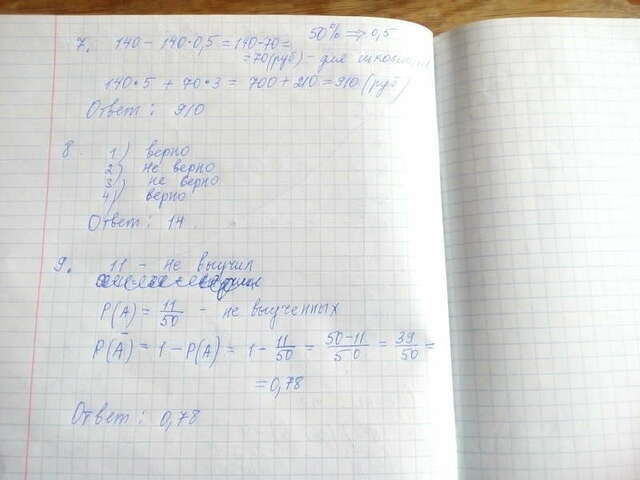 7. 140 - 140·0,5 = 140-70 = 50% => 0,5
= 70 (руб) - для школьника
140·5 + 70·3 = 700 + 210 = 910 (руб)
Ответ: 910
8. 1) верно
2) не верно
3) не верно
4) верно
Ответ: 14
9. 11 - не выучил
P(A) = 11/50 - не выученных
P(Ā) = 1 - P(A) = 1 - 11/50 = 50-11/50 = 39/50 =
= 0,78
Ответ: 0,78